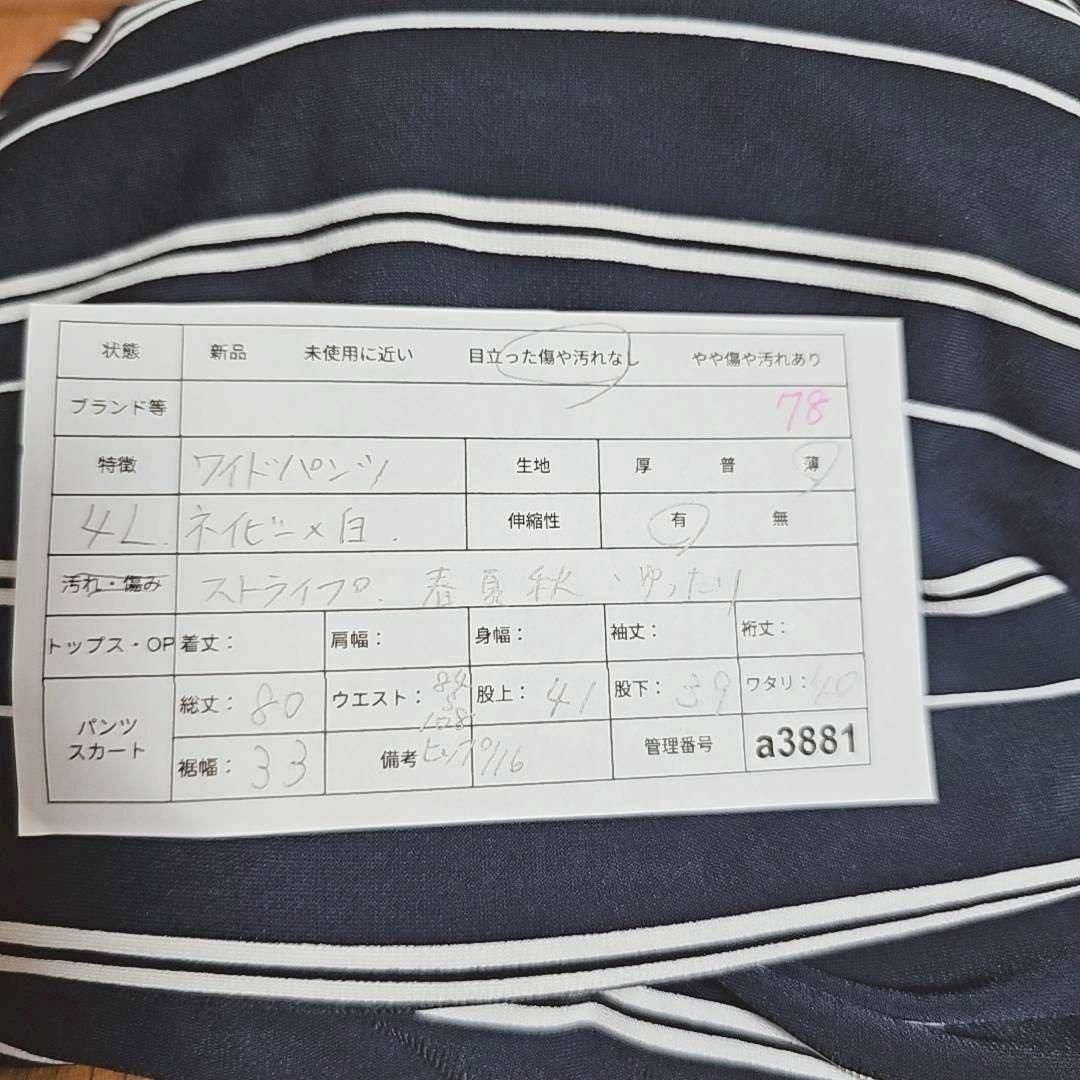 状態 新品 未使用に近い 目立った傷や汚れなし やや傷や汚れあり
ブランド等 78
特徴 ワイドパンツ 生地 厚 普 薄
4L. ネイビー×白. 伸縮性 有 無
汚れ・傷み ストライプ. 春夏秋、ゆったり
トップス・OP 着丈: 肩幅: 身幅: 袖丈: 裄丈:
パンツ スカート 総丈: 80 ウエスト: 84 108 股上: 41 股下: 39 ワタリ: 40
裾幅: 33 備考 ヒップ116 管理番号 a3881